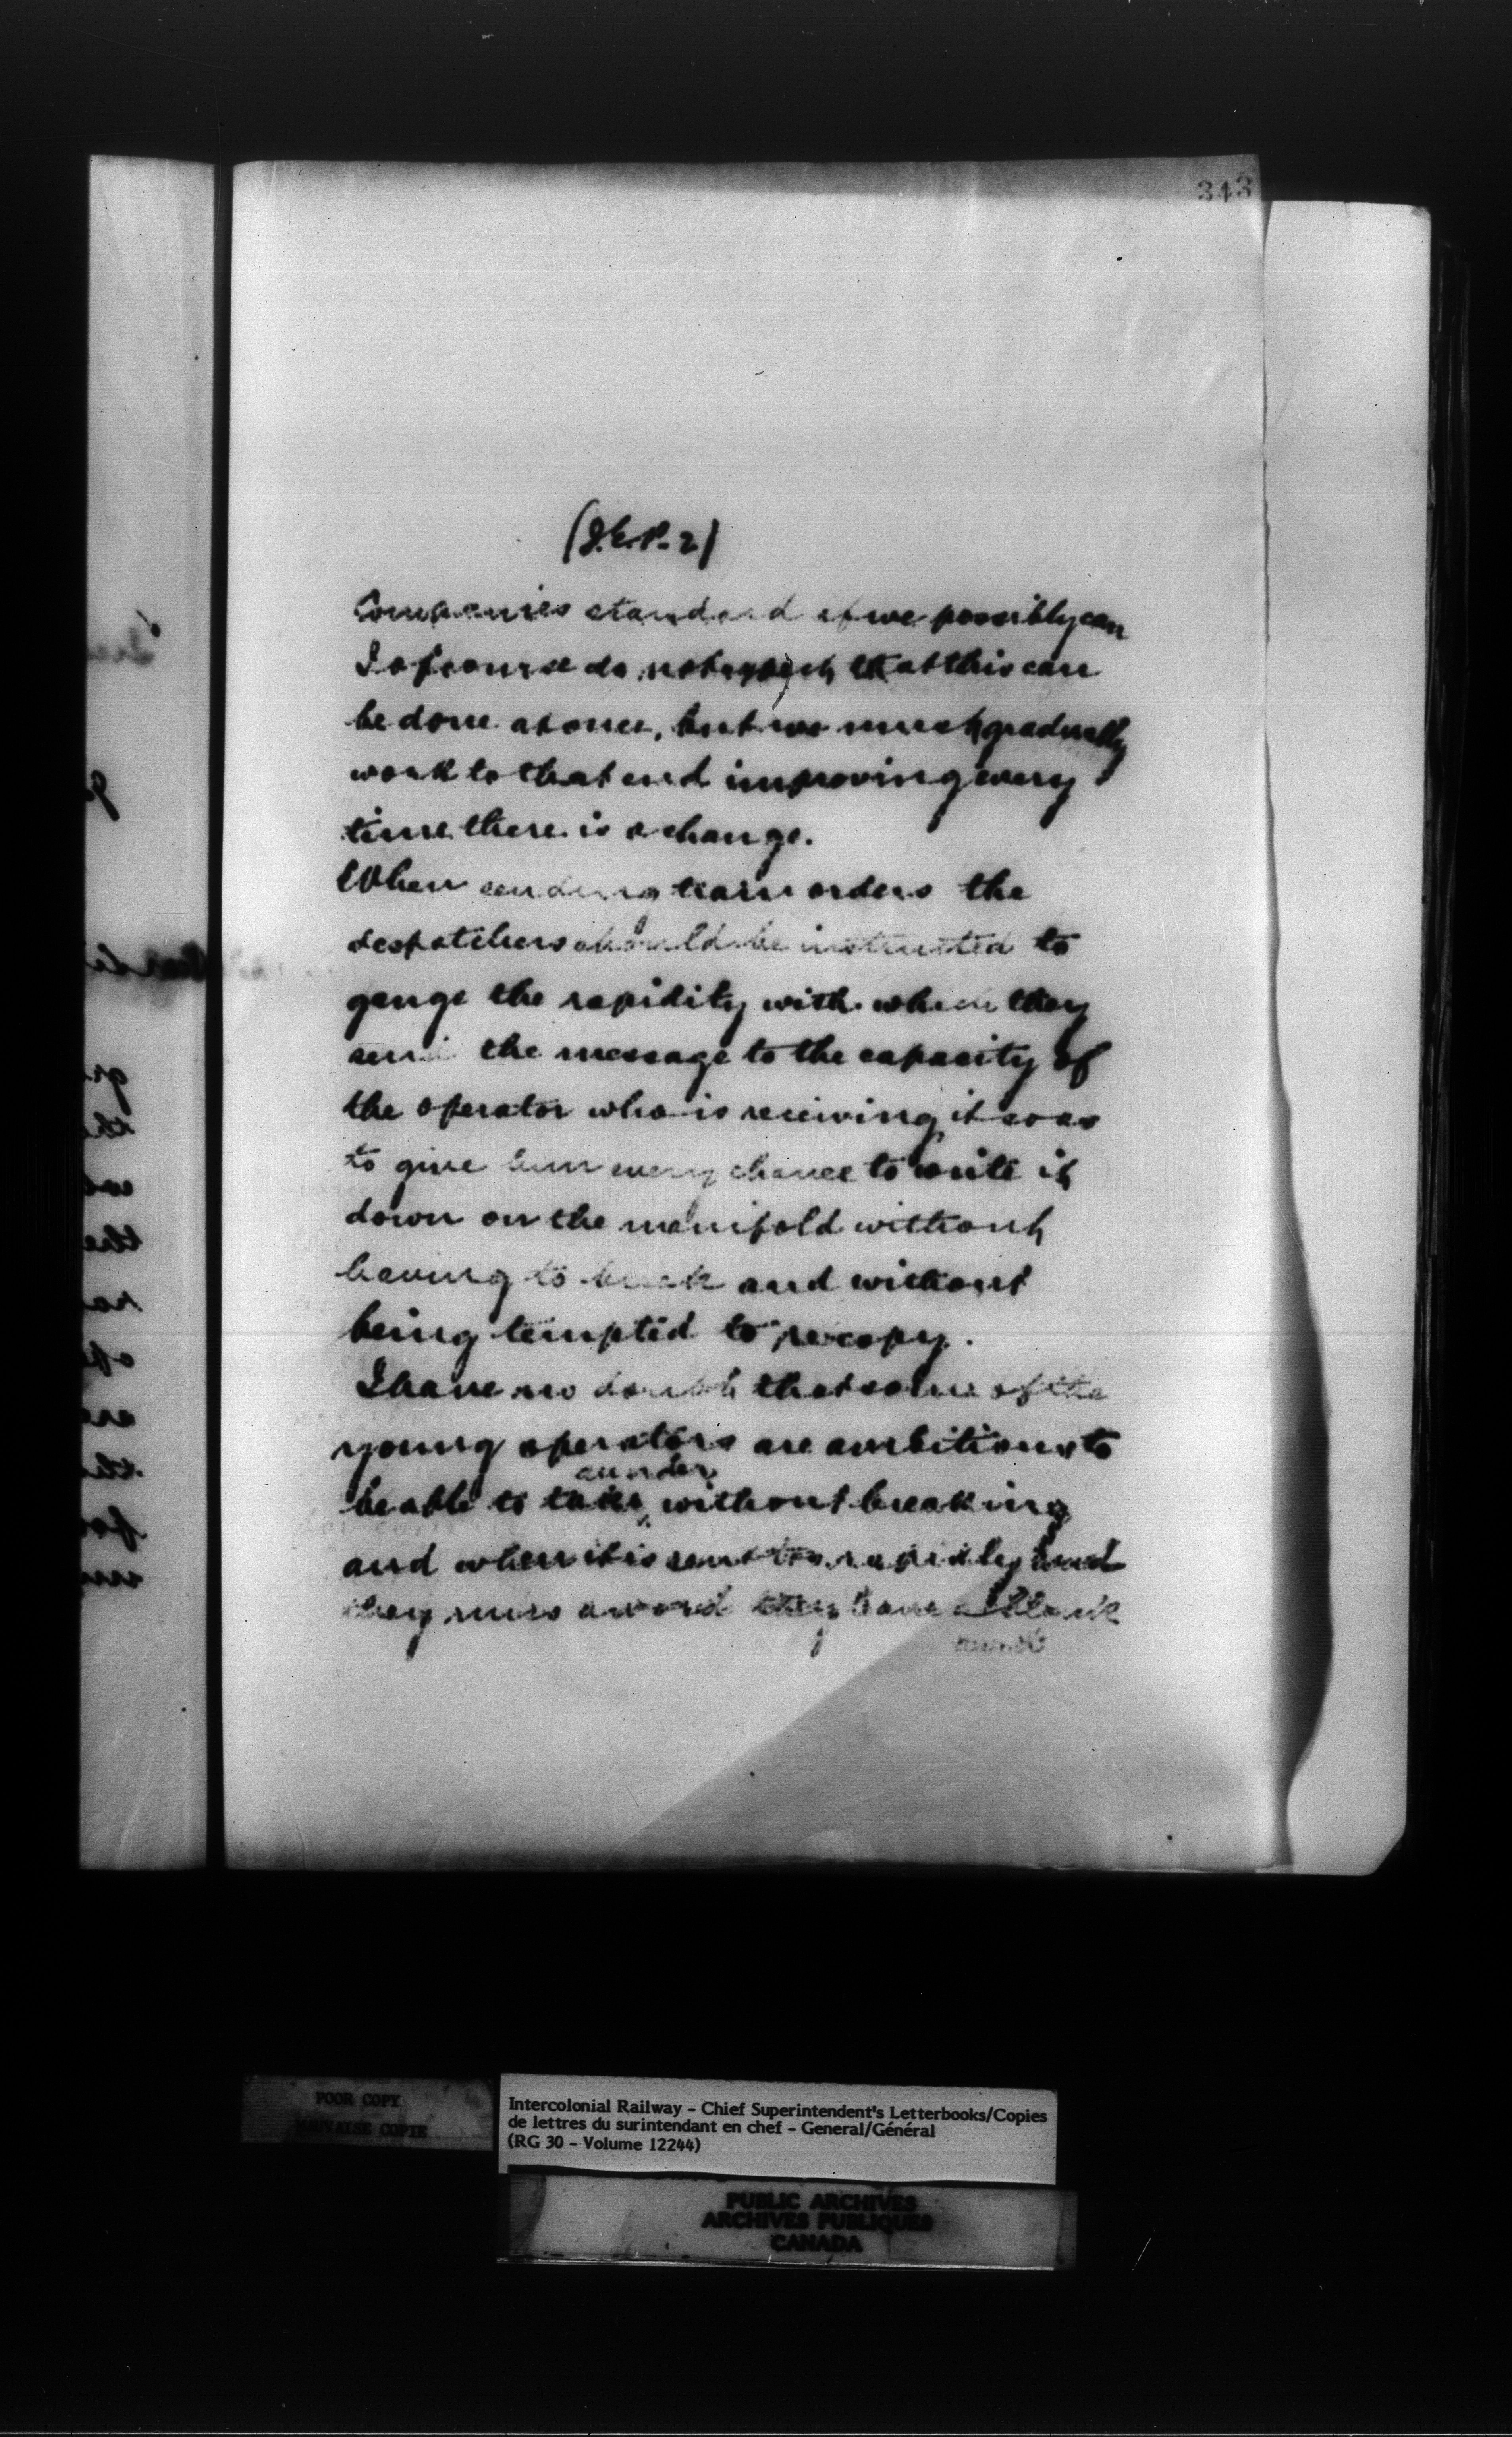 343
(J.E.P. 2)
Companies standard if we possibly can
I of course do not expect that this can
be done at once, but we must gradually
work to that end improving every
time there is a change.
When sending train orders the
despatchers should be instructed to
gauge the rapidity with which they
send the message to the capacity of
the operator who is receiving it so as
to give him every chance to write it
down on the manifold without
having to break and without
being tempted to recopy.
I have no doubt that some of the
young operators are ambitious to
an order
be able to take without breaking
and when it is sent too rapidly and
they miss a word they leave a blank
POOR COPY
MAUVAISE COPIE
Intercolonial Railway - Chief Superintendent's Letterbooks/Copies
de lettres du surintendant en chef - General/Général
(RG 30 - Volume 12244)
PUBLIC ARCHIVES
ARCHIVES PUBLIQUES
CANADA